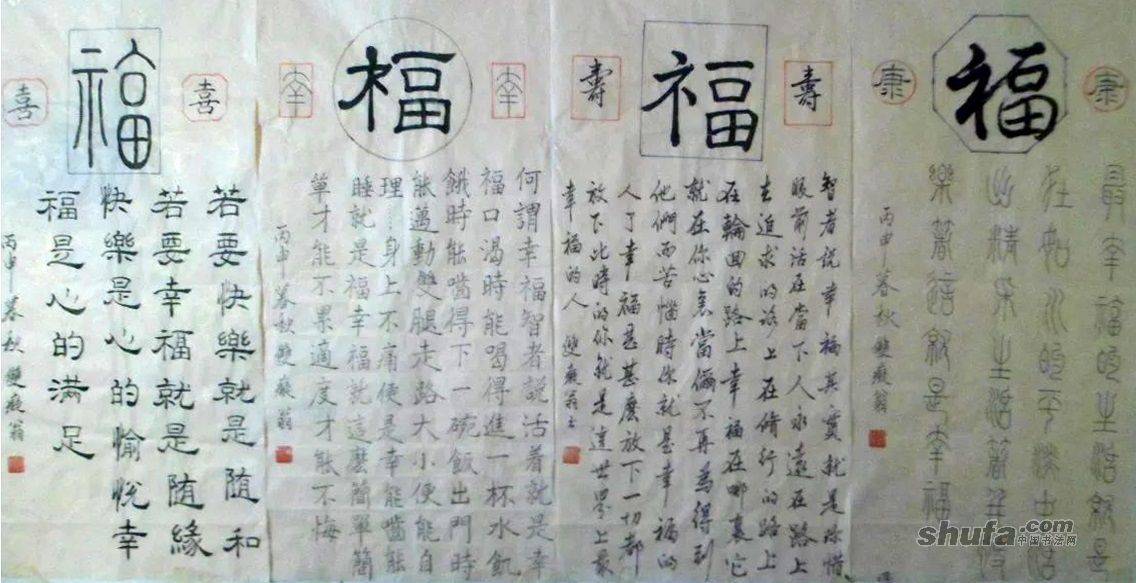 康
福
康
最幸福的生活就是
在如水的平淡中活
出精采生活簡單
樂著這就是幸福
丙申暮秋雙癡翁
壽
福
壽
智者說幸福其實就是珍惜
眼前活在當下人永遠在路上
去追求的路上在修行的路上
在輪回的路上幸福在哪裏它
就在你心裏當倆不再為得到
他們而苦惱時你就是幸福的
人了幸福是甚麼放下一切都
放下此時的你就是這世界上最
幸福的人 雙癡翁書
幸
福
幸
何謂幸福智者說活着就是幸
福口渴時能喝得進一杯水飢
餓時能嚙得下一碗飯出門時
能邁動雙腿走路大小便能自
理…身上不痛便是幸能嚙能
睡就是福幸福就這麼簡單簡
單才能不累適度才能不悔
丙申暮秋雙癡翁
喜
福
喜
若要快樂就是隨和
若要幸福就是随緣
快樂是心的愉悅幸
福是心的满足
丙申暮秋雙癡翁
shufa.com
中国书法网